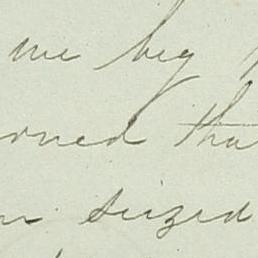 me beg
rned tha
seized